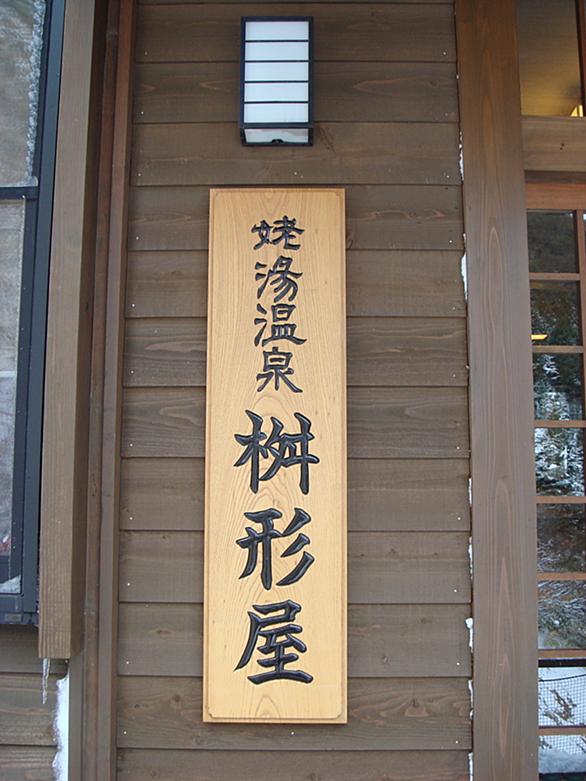 姥湯温泉桝形屋